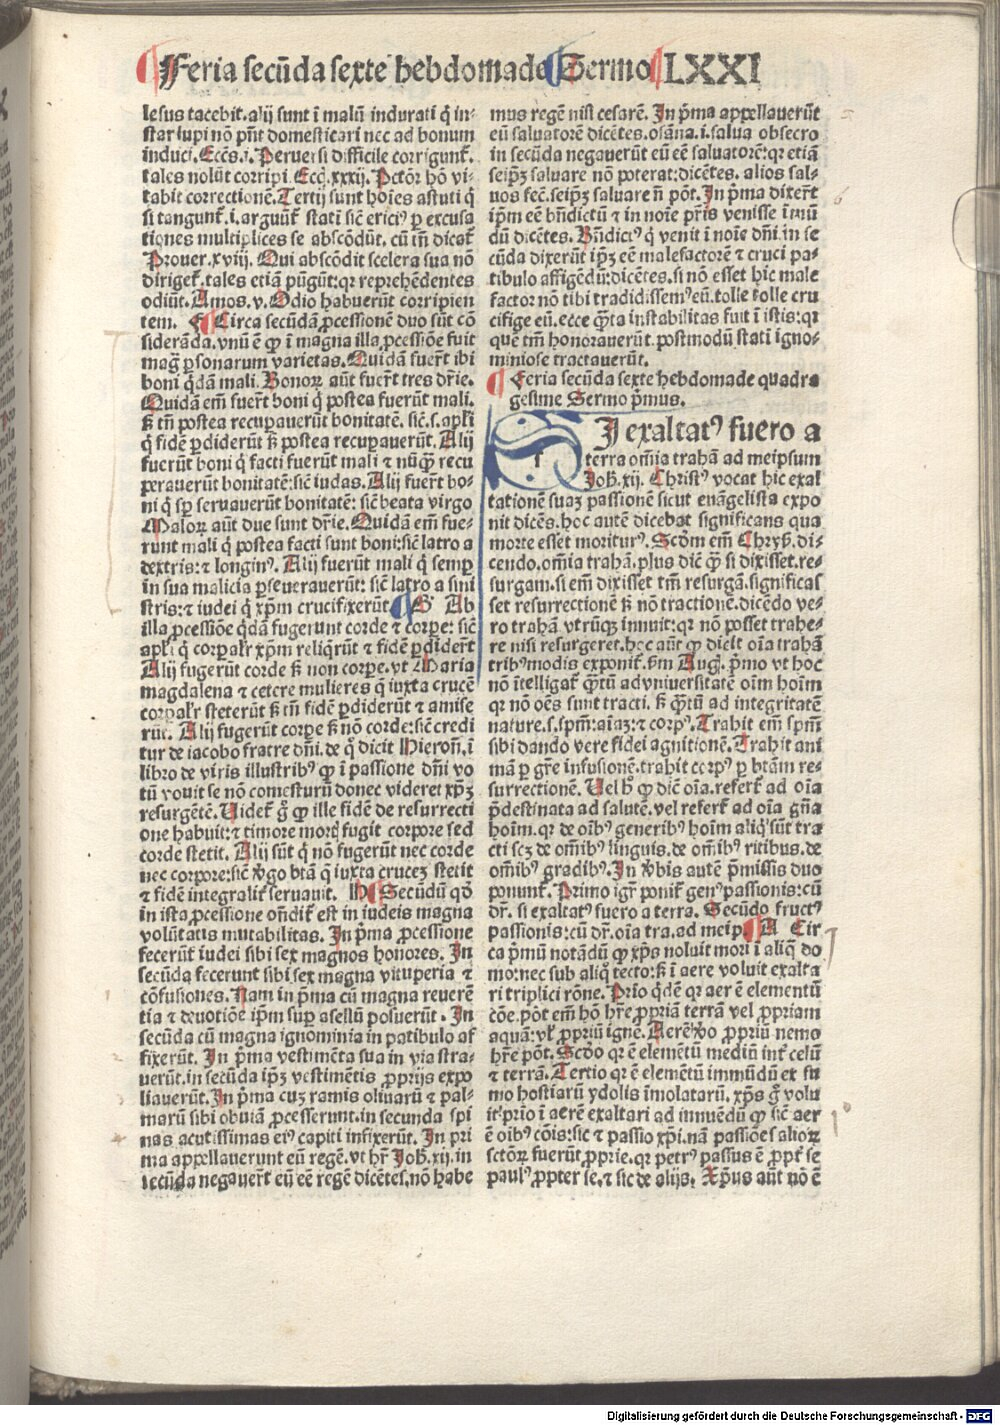 Feria secūda sexte hebdomade Sermo LXXI
lesus tacebit. alij sunt ī malū indurati q̇ in-
star lupi nō pn̄t domesticari nec ad bonum
induci. Eccēs. i. Peruersi difficile corrigunt̄.
tales nolūt corripi. Ecc̄i. xxxij. Pctōr hō vi-
tabit correctionē. Tertij sunt hoīes astuti q̇
si tangunt̄. i. arguūt̄ stati sic̄ ericiꝰ ꝑ excusa
tiones multiplices se abscōdūt. cū tn̄ dicat̄
Prouer. xviij. Qui abscōdit scelera sua nō
diriget̄. tales etiā pūgūt: qr reprehēdentes
odiūt. Amos. v. Odio habuerūt corripien
tem. F Circa secūdā ꝓcessionē duo sūt cō
siderāda. vnū ē ꝙ ī magna illa ꝓcessiōe fuit
maḡ ꝑsonarum varietas. Quidā fuert̄ ibi
boni q̇dā mali. Bonoꝝ aūt fuert̄ tres dr̄ie.
Quidā em̄ fuert̄ boni q̇ postea fuerūt mali.
ꝫ tn̄ postea recuꝑauerūt bonitatē. sic̄. s. apl̄i
q̇ fidē ꝑdiderūt ꝫ postea recuꝑauerūt. Alij
fuerūt boni q̇ facti fuerūt mali ⁊ nūꝙ̄ recu
ꝑerauerūt bonitatē: sic̄ iudas. Alij fuert̄ bo-
ni q̇ sꝑ seruauerūt bonitatē: sic̄ beata virgo
Maloꝝ aūt due sunt dr̄ie. Quidā em̄ fue-
runt mali q̇ postea facti sunt boni: sic̄ latro a
dextris: ⁊ longinꝰ. Alij fuerūt mali q̇ semꝑ
in sua malicia ꝑseuerauerūt: sic̄ latro a sini
stris: ⁊ iudei q̇ xp̄m crucifixerūt. G Ab
illa ꝓcessiōe q̇dā fugerunt corde ⁊ corꝑe: sic̄
apl̄i q̇ corꝑalr̄ xp̄m reliq̇rūt ⁊ fidē ꝑdidert̄
Alij fugerūt corde ꝫ non corꝑe. vt Maria
magdalena ⁊ cetere mulieres q̄ iuxta crucē
corꝑalr̄ steterūt ꝫ tn̄ fidē ꝑdiderūt ⁊ amise
rūt. Alij fugerūt corꝑe ꝫ nō corde: sic̄ credi
tur de iacobo fratre dn̄i. de q̊ dicit Hieron̄. ī
libro de viris illustribꝰ ꝙ ī passione dn̄i vo
tū vouit se nō comesturū donec videret xp̄ꝫ
resurgētē. Uidet̄ g̊ ꝙ ille fidē de resurrecti
one habuit: ⁊ timore mortꝭ fugit corpore sed
corde stetit. Alij sūt q̇ nō fugerūt nec corde
nec corpore: sic̄ v̄go btā q̄ iuxta crucez stetit
⁊ fidē integralit̄ seruauit. H Secūdū qd̄
in ista ꝓcessione on̄dit̄ est in iudeis magna
volūtatis mutabilitas. In p̄ma ꝓcessione
fecerūt iudei sibi sex magnos honores. In
secūda fecerunt sibi sex magna vituperia ⁊
cōfusiones. Nam in p̄ma cū magna reuerē
tia ⁊ deuotiōe ip̄m suꝑ asellū posuerūt. In
secūda cū magna ignominia in patibulo af
fixerūt. In p̄ma vestimēta sua in via stra-
uerūt. in secūda ip̄ꝫ vestimētis ꝓprijs expo
liauerūt. In p̄ma cuꝫ ramis oliuarū ⁊ pal-
marū sibi obuiā ꝓcesserunt. in secunda spi
nas acutissimas eiꝰ capiti infixerūt. In pri
ma appellauerunt eū regē. vt hr̄ Joh̄. xij. in
secūda negauert̄ eū eē regē dicētes. nō habe
mus regē nisi cesarē. In p̄ma appellauerūt
eū saluatorē dicētes. osāna. i. salua obsecro
in secūda negauerūt eū eē saluatorē: qr etiā
seip̄ꝫ saluare nō poterat: dicētes. alios sal-
uos fec̄. seip̄ꝫ saluare n̄ pōt. In p̄ma dixert̄
ip̄m eē bn̄dictū ⁊ in noīe pr̄is venisse ī mū
dū dicētes. Bn̄dictꝰ q̇ venit ī noīe dn̄i. in se
cūda dixerūt ip̄ꝫ eē malefactorē ⁊ cruci pa-
tibulo affigēdū: dicētes. si nō esset hic male
factor nō tibi tradidissemꝰ eū. tolle tolle cru
cifige eū. ecce q̄ta instabilitas fuit ī istis: qr
quē tm̄ honorauerūt. postmodū stati igno-
miniose tractauerūt.
Feria secūda sexte hebdomade quadra
gesime Sermo p̄mus.
SJ exaltatꝰ fuero a
terra om̄ia trahā ad meipsum
Joh̄. xij. Christꝰ vocat hic exal
tationē suaꝫ passionē sicut euāgelista expo
nit dicēs. hoc autē dicebat significans qua
morte esset moriturꝰ. Scdm̄ em̄ Chrys̄. di-
cendo. om̄ia trahā. plus dic̄ ꝙ̄ si dixisset. re-
surgam. si em̄ dixisset tm̄ resurgā. significas
set resurrectionē ꝫ nō tractionē. dicēdo ve-
ro trahā vtrūqꝫ innuit: qr nō posset trahe-
re nisi resurgeret. hoc aūt ꝙ dic̄t oīa trahā
tribꝰ modis exponit̄. s̄m Auḡ. p̄mo vt hoc
nō ītelligat̄ q̄tū ad vniuersitatē oīm hoīm
qr nō oēs sunt tracti. ꝫ q̄tū ad integritatē
nature. s. sp̄m: aīaꝫ: ⁊ corpꝰ. Trahit em̄ sp̄m
sibi dando vere fidei agnitionē. Trahit ani
mā ꝑ gr̄e infusionē. trahit corpꝰ ꝑ btām re-
surrectionē. Uel h̄ ꝙ dic̄ oīa. refert̄ ad oīa
p̄destinata ad salutē. vel refert̄ ad oīa gn̄a
hoīm. qr de oībꝰ generibꝰ hoīm aliq̇ sūt tra
cti scꝫ de om̄ibꝰ linguis. de om̄ibꝰ ritibus. de
om̄ibꝰ gradibꝰ. In v̄bis autē p̄missis duo
ponunt̄. Primo igr̄ ponit̄ genꝰ passionis: cū
dr̄. si exaltatꝰ fuero a terra. Secūdo fructꝰ
passionis: cū dr̄. oīa tra. ad meip. A Cir
ca p̄mū notādū ꝙ xp̄s noluit mori ī aliq̊ do
mo: nec sub aliq̊ tecto: ꝫ ī aere voluit exalta
ri triplici rōne. Prīo q̇dē qr aer ē elementū
cōe. pōt em̄ hō hr̄e ꝓpriā terrā vel ꝓpriam
aquā: vl̄ ꝓpriū ignē. Aerē v̊o ꝓpriū nemo
hr̄e pōt. Scd̊o qr ē elemētū mediū int̄ celū
⁊ terrā. Tertio qr ē elemētū immūdū ex fu
mo hostiarū ydolis īmolatarū. xp̄s g̊ volu
it prīo ī aerē exaltari ad innuēdū ꝙ sic̄ aer
ē oībꝰ cōis: sic ⁊ passio xp̄i. nā passiōes alioꝝ
sctōꝝ fuerūt ꝓprie. qr petrꝰ passus ē ꝓpt̄ se
paulꝰ ꝓpter se. ⁊ sic de alijs. Xp̄us aūt nō ē
Digitalisierung gefördert durch die Deutsche Forschungsgemeinschaft - DFG